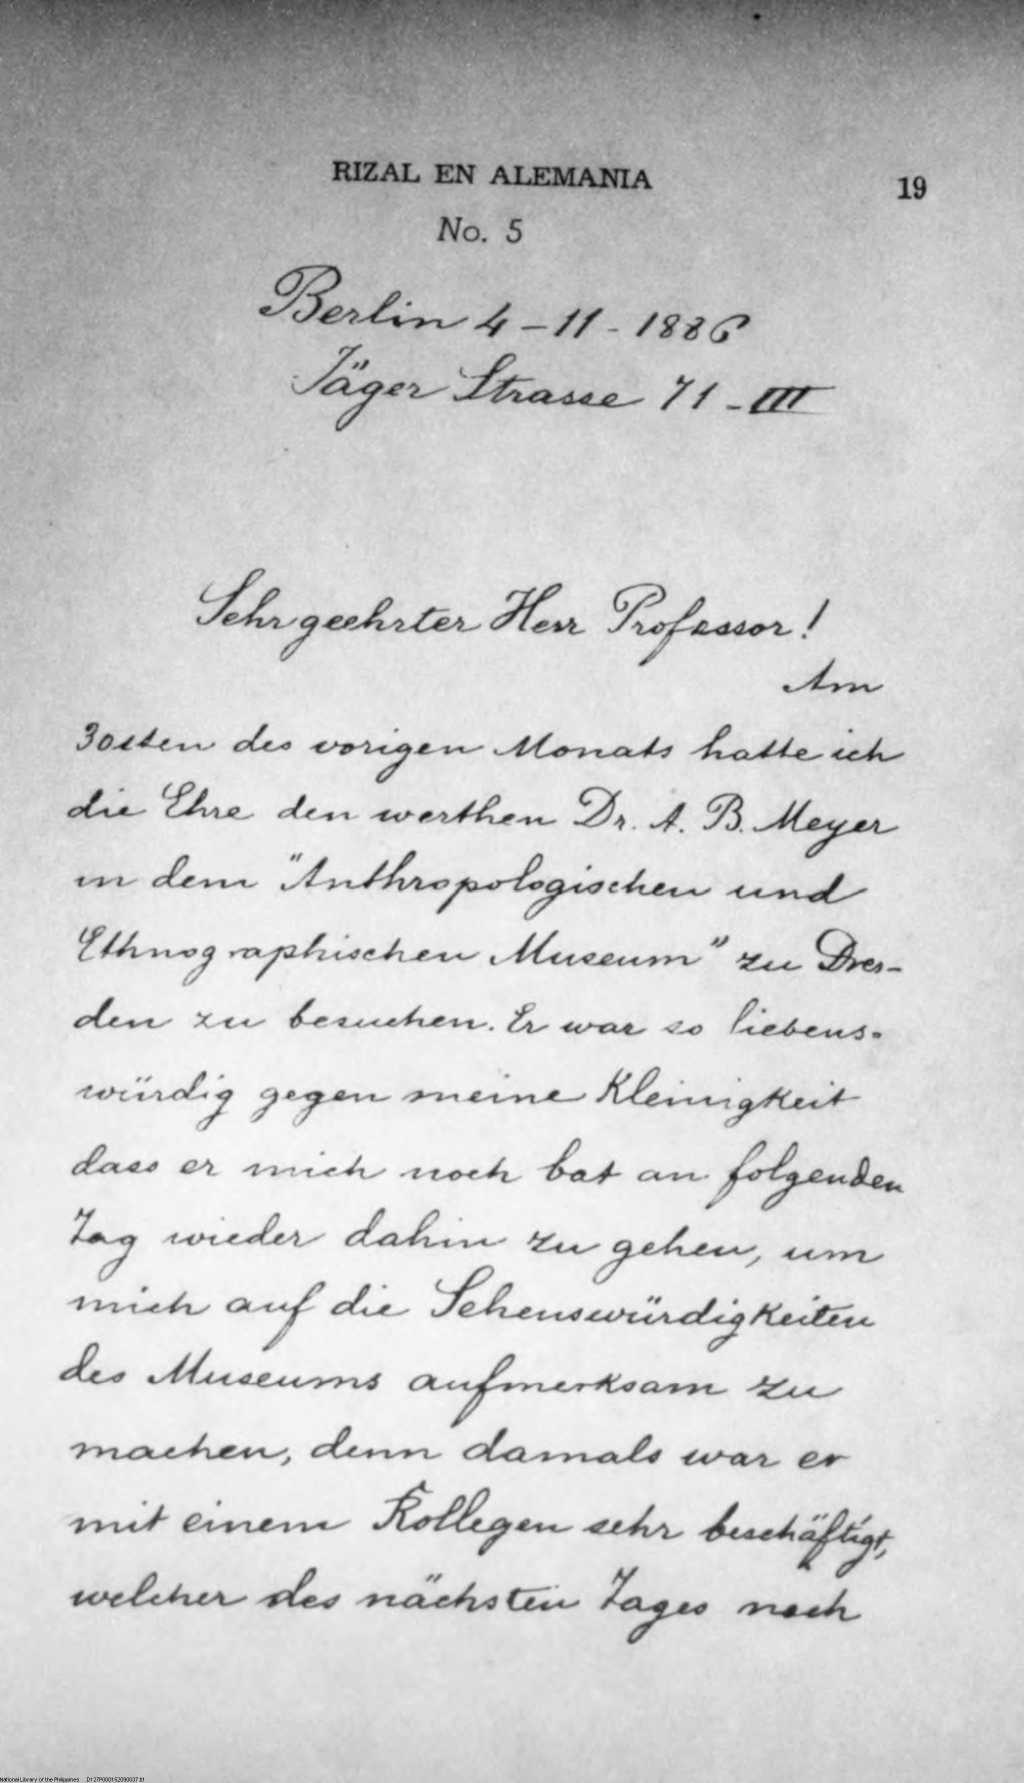 RIZAL EN ALEMANIA
19
No. 5
Berlin 4 - 11 - 1886
Jäger Strasse 71 - III
Sehrgeehrter Herr Professor!
Am
30sten des vorigen Monats hatte ich
die Ehre den werthen Dr. A. B. Meyer
in dem "Anthropologischen und
Ethnographischen Museum" zu Dres-
den zu besuchen. Er war so liebens-
würdig gegen meine Kleinigkeit
dass er mich noch bat an folgenden
Tag wieder dahin zu gehen, um
mich auf die Sehenswürdigkeiten
des Museums aufmerksam zu
machen, denn damals war er
mit einem Kollegen sehr beschäftigt,
welcher des nächsten Tages nach
National Library of the Philippines